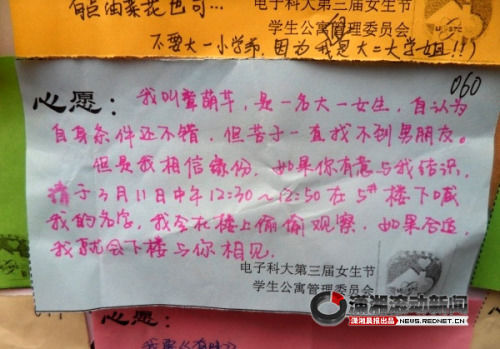 有点油菜花也可...
电子科大第三届女生节
学生公寓管理委员会
不要大一小学弟，因为我是大二大学姐!!)
060
心愿：我叫龚萌芊，是一名大一女生，自认为
自身条件还不错，但苦于一直找不到男朋友。
但是我相信缘份，如果你有意与我结识，
请于3月11日中午12:30～12:50在5#楼下喊
我的名字，我会在楼上偷偷观察，如果合适，
我就会下楼与你相见。
电子科大第三届女生节
学生公寓管理委员会
心愿：
潇湘滚动新闻
潇湘晨报出品
NEWS.REDNET.CN